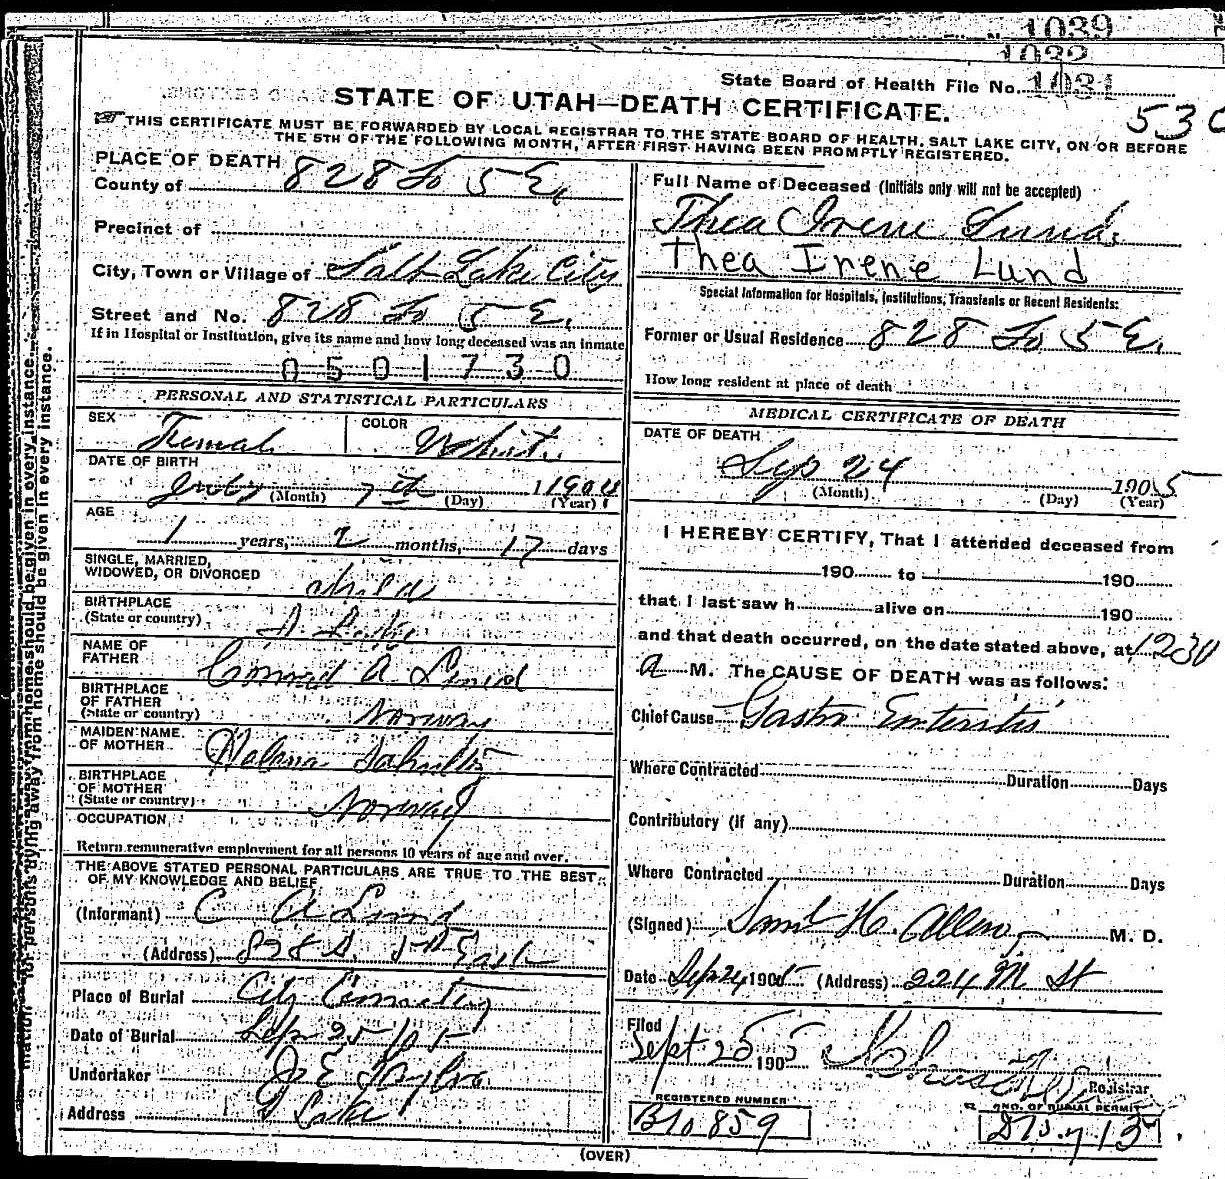 1039
1032
State Board of Health File No. 1031
STATE OF UTAH—DEATH CERTIFICATE.
530
THIS CERTIFICATE MUST BE FORWARDED BY LOCAL REGISTRAR TO THE STATE BOARD OF HEALTH, SALT LAKE CITY, ON OR BEFORE
THE 5TH OF THE FOLLOWING MONTH, AFTER FIRST HAVING BEEN PROMPTLY REGISTERED.
PLACE OF DEATH
County of 828 So 5 E.
Precinct of
City, Town or Village of Salt Lake City
Street and No. 828 So 5 E.
If in Hospital or Institution, give its name and how long deceased was an inmate
0501730
PERSONAL AND STATISTICAL PARTICULARS
SEX Female COLOR White
DATE OF BIRTH
July 7th 1904
(Month) (Day) (Year)
AGE
1 years, 2 months, 17 days
SINGLE, MARRIED,
WIDOWED, OR DIVORCED child
BIRTHPLACE
(State or country) S. Lake
NAME OF
FATHER Conrad A Lund
BIRTHPLACE
OF FATHER
(State or country) Norway
MAIDEN NAME
OF MOTHER Helena
BIRTHPLACE
OF MOTHER
(State or country) Norway
OCCUPATION
Return remunerative employment for all persons 10 years of age and over.
THE ABOVE STATED PERSONAL PARTICULARS ARE TRUE TO THE BEST
OF MY KNOWLEDGE AND BELIEF
(Informant) C A Lund
(Address) 828 S. 5th East
Place of Burial City Cemetery
Date of Burial Sep 25/05
Undertaker J E Taylor
Address S Lake
Full Name of Deceased (Initials only will not be accepted)
Thea Irene Lund.
Thea Irene Lund
Special Information for Hospitals, Institutions, Transients or Recent Residents:
Former or Usual Residence 828 So 5 E.
How long resident at place of death
MEDICAL CERTIFICATE OF DEATH
DATE OF DEATH
Sep 24 1905
(Month) (Day) (Year)
I HEREBY CERTIFY, That I attended deceased from
190 to 190
that I last saw h alive on 190
and that death occurred, on the date stated above, at 1230
a M. The CAUSE OF DEATH was as follows:
Chief Cause Gastro Enteritis
Where Contracted Duration Days
Contributory (if any)
Where Contracted Duration Days
(Signed) Saml H. Allen M. D.
Date Sep 24 1905 (Address) 224 M St
Filed
Sept 25 1905
Registrar
REGISTERED NUMBER
NO. OF BURIAL PERMIT
(OVER)
for persons dying away from home should be given in every instance.